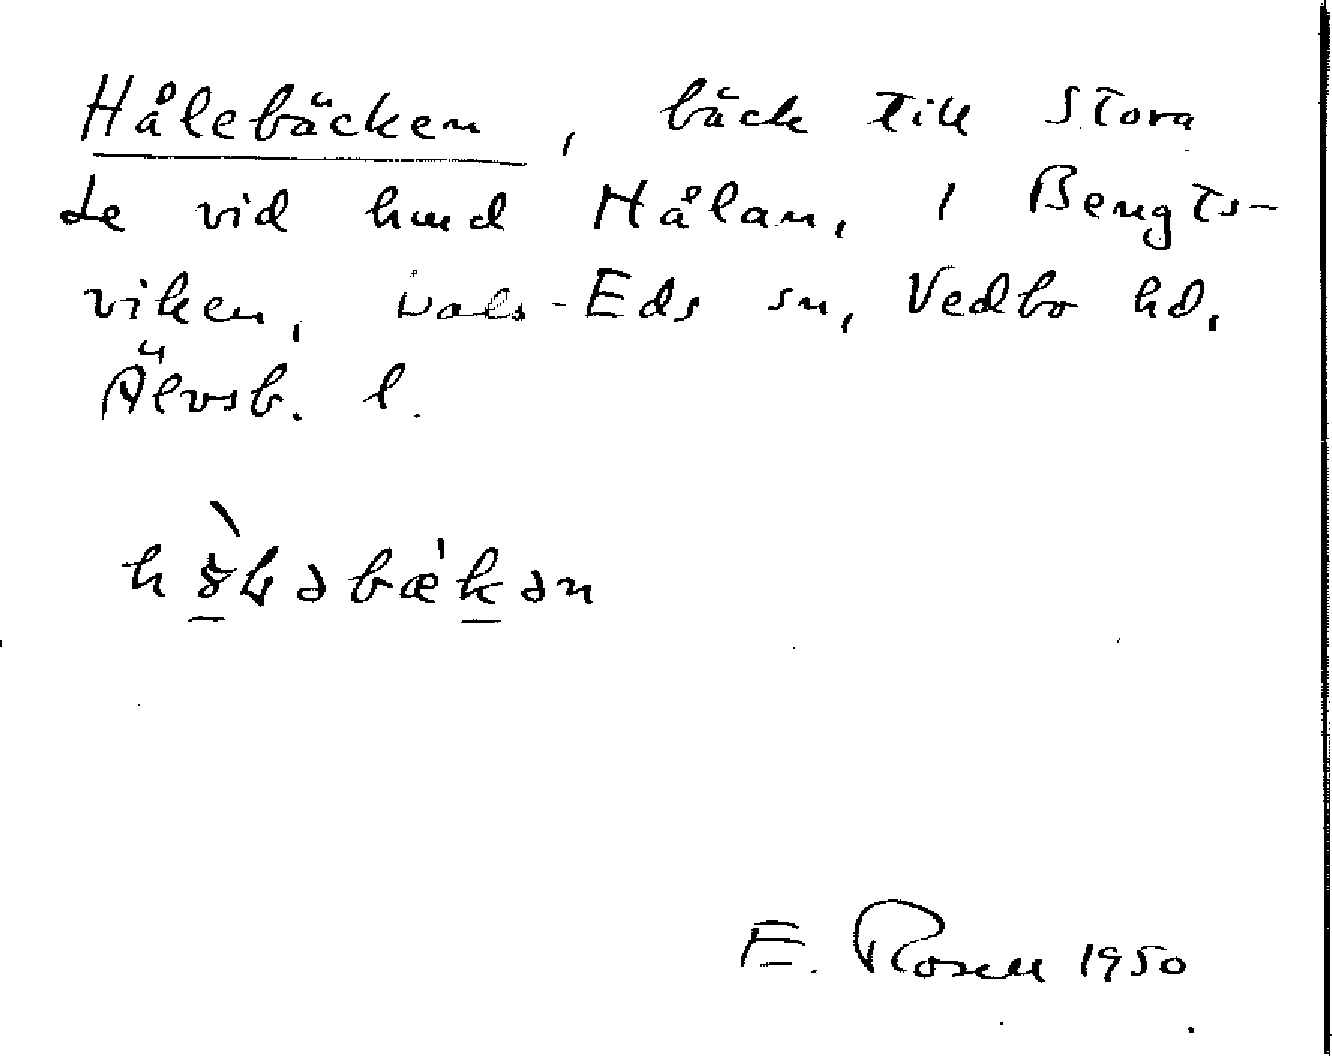 Hålebäcken, bäck till Stora
Le vid hmd Hålan, i Bengts-
viken, Dals-Eds sn, Vedbo hd,
Älvsb. l.
E. Rosell 1950